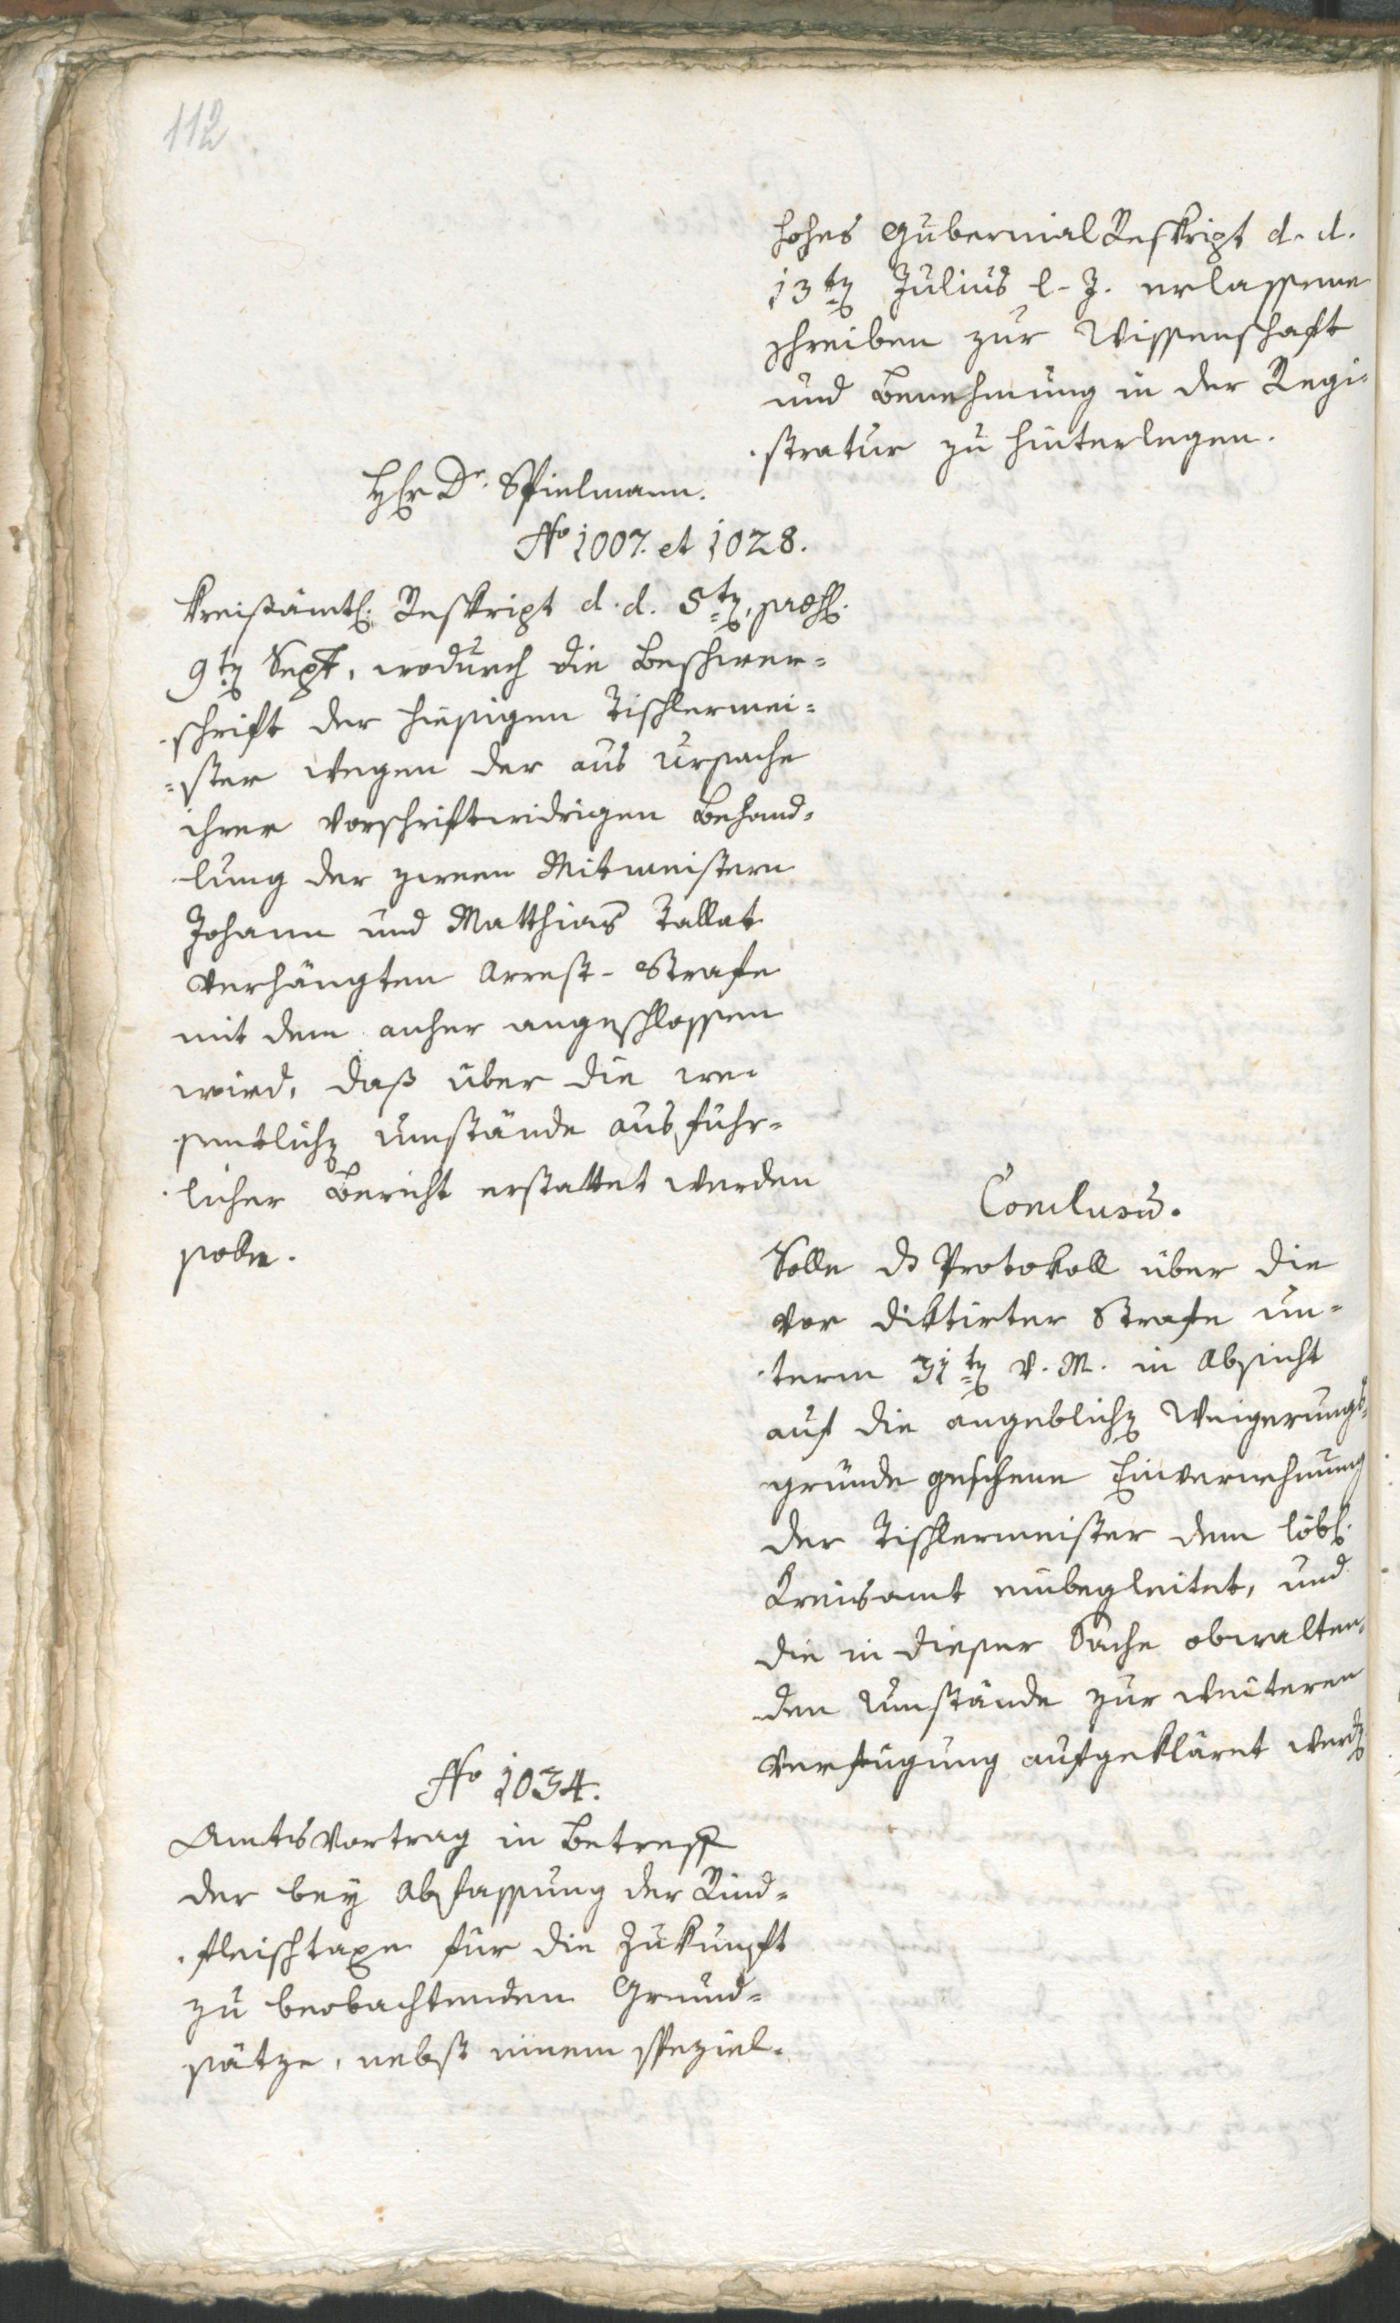 112
hohes Gubernial Reskript d. d.
13ten Julius l. J. erlassene
schreiben zur Wissenschaft
und Benehmung in der Regi-
stratur zu hinterlegen.
Herr Dr. Spielmann.
No 1007. et 1028.
Kreisämtl: Reskript d. d. 5ten, praes.
9ten Sept, wodurch die Beschwer-
schrift der hiesigen Tischlermei-
ster wegen der aus Ursache
ihrer vorschriftwidrigen Behand-
lung der zween Mitmeistern
Johann und Matthias Tallat
verhängten Arrest-Strafe
mit dem anher angeschlossen
wird, daß über die we-
sentlichen Umstände ausführ-
licher Bericht erstattet werden
solle.
Conclusũ.
Solle ds Protokoll über die
vor diktirter Strafe un-
term 31ten v. M. in Absicht
auf die angeblichen Weigerungs-
gründe geschehene Einvernehmung
der Tischlermeister dem löbl.
Kreisamt einbegleitet, und
die in dieser Sache obwalten-
den Umstände zur weiteren
Verfügung aufgeklärt werden
No 1034.
Amtsvortrag in Betreff
der bey Abfassung der Rind-
fleischtaxe für die Zukunft
zu beobachtenden Grund-
sätze, nebst einem speziel-